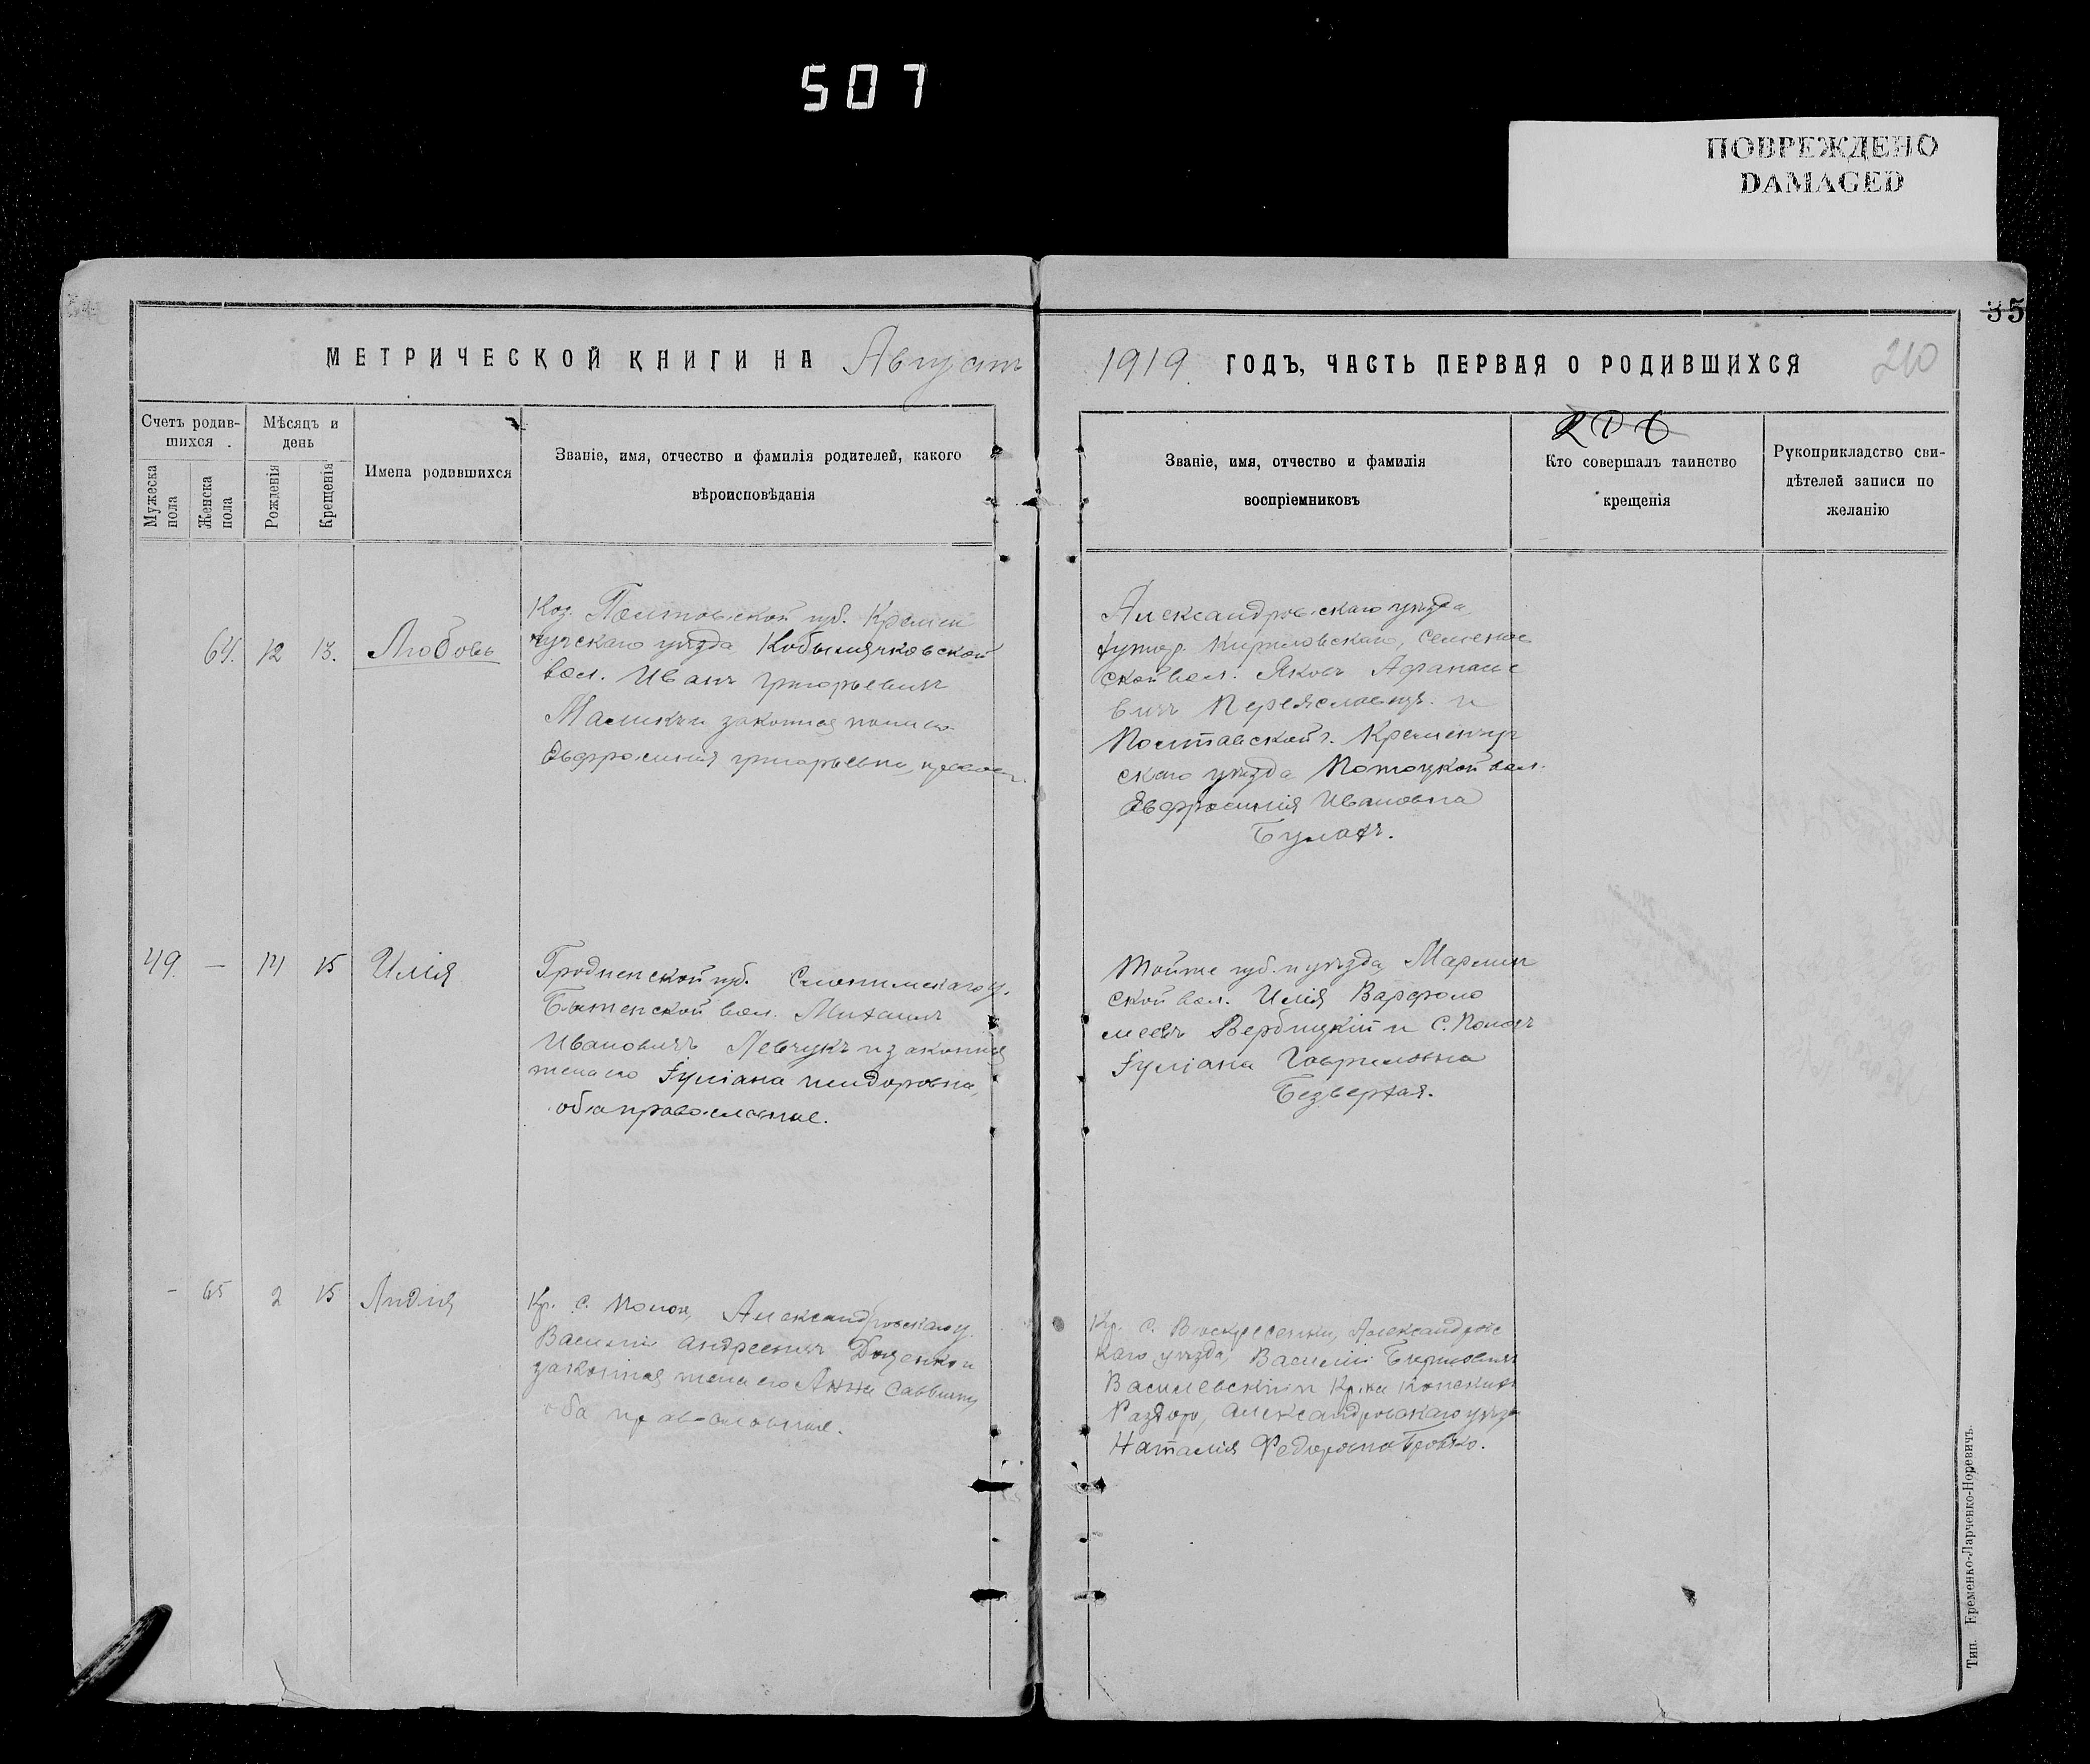 507
ПОВРЕЖДЕНО
DAMAGED
35
МЕТРИЧЕСКОЙ КНИГИ НА Августъ
1919 ГОДЪ, ЧАСТЬ ПЕРВАЯ О РОДИВШИХСЯ
210
Счетъ родив-
шихся
Мужеска
пола
Женска
пола
Мѣсяцъ и
день
Рожденія
Крещенія
Имена родившихся
Званіе, имя, отчество и фамилія родителей, какого
вѣроисповѣданія
Званіе, имя, отчество и фамилія
воспріемниковъ
Кто совершалъ таинство
крещенія
Рукоприкладство сви-
дѣтелей записи по
желанію
64. 12 13. Любовь
Коз. Полтавской губ. Кремен
чугскаго уѣзда Кобылячковской
вол. Иванъ Григорьевичъ
Маликъ и законная
Евфросинія Григорьевна,
Александровскаго уѣзда,
хутор. Кирилловскаго, Семенов
ской вол. Яковъ Афанасье
вичъ Переяславецъ и
Полтавской г. Кременчуг
скаго уѣзда Потоцкой вол.
Евфросинія Ивановна
Булахъ.
49. — 14 15 Илія
Гродненской губ. Слонимскаго у.
Бытенской вол. Михаилъ
Ивановичъ Левчукъ и законная
жена его Іуліана
оба православные.
Тойже губ. и уѣзда,
ской вол. Илія Варфоло
меевъ Вербицкій и с. Пологъ
Іуліана Гавриловна
Безверхая.
- 65 2 15 Лидія
Кр. с. Пологъ, Александровскаго у.
Василій Андреевичъ Доценко и
законная жена его Анна Саввична
оба православные.
Кр. с. Воскресенки, Александровс
каго уѣзда, Василій
Василевскій и Кр-ка
Раздоръ, Александровскаго уѣзда
Наталія Федоровна
Тип. Еременко-Ларченко-Норевичъ.